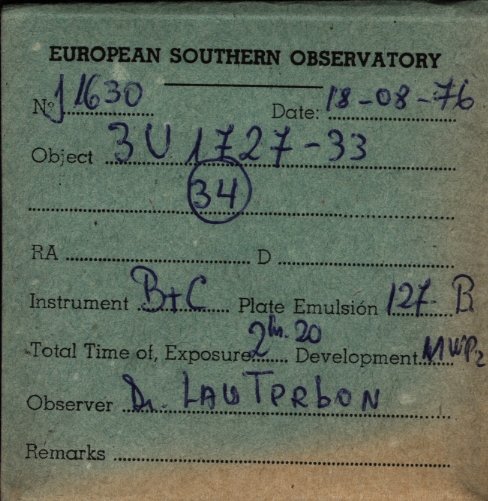 EUROPEAN SOUTHERN OBSERVATORY
Nº J1630 Date: 18-08-76
Object 3U 1727-33
34
RA D
Instrument B+C Plate Emulsión 127-B
Total Time of, Exposure 2h.20 Development MWP2
Observer Dr. LAUTERBORN
Remarks